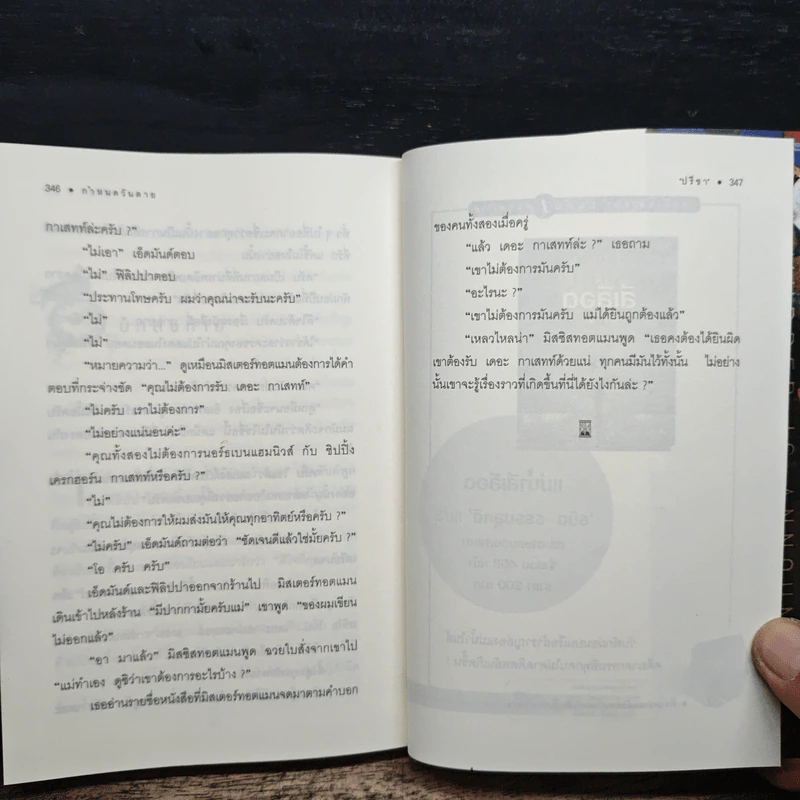 346 • กำหนดวันตาย
กาเสทท์ล่ะครับ ?”
“ไม่เอา” เอ็ดมันด์ตอบ
“ไม่” ฟิลิปปาตอบ
“ประทานโทษครับ ผมว่าคุณน่าจะรับนะครับ”
“ไม่”
“ไม่”
“หมายความว่า...” ดูเหมือนมิสเตอร์ทอตแมนต้องการได้คำ
ตอบที่กระจ่างชัด “คุณไม่ต้องการรับ เดอะ กาเสทท์”
“ไม่ครับ เราไม่ต้องการ”
“ไม่อย่างแน่นอนค่ะ”
“คุณทั้งสองไม่ต้องการนอร์ธเบนแฮมนิวส์ กับ ชิปปิ้ง
เครกฮอร์น กาเสทท์หรือครับ ?”
“ไม่”
“คุณไม่ต้องการให้ผมส่งมันให้คุณทุกอาทิตย์หรือครับ ?”
“ไม่ครับ” เอ็ดมันด์ถามต่อว่า “ชัดเจนดีแล้วใช่มั้ยครับ ?”
“โอ ครับ ครับ”
เอ็ดมันด์และฟิลิปปาออกจากร้านไป มิสเตอร์ทอตแมน
เดินเข้าไปหลังร้าน “มีปากกามั้ยครับแม่” เขาพูด “ของผมเขียน
ไม่ออกแล้ว”
“อา มาแล้ว” มิสซิสทอตแมนพูด ฉวยใบสั่งจากเขาไป
“แม่ทำเอง ดูซิว่าเขาต้องการอะไรบ้าง ?”
เธออ่านรายชื่อหนังสือที่มิสเตอร์ทอตแมนจดมาตามคำบอก
'ปรีชา' • 347
ของคนทั้งสองเมื่อครู่
“แล้ว เดอะ กาเสทท์ล่ะ ?” เธอถาม
“เขาไม่ต้องการมันครับ”
“อะไรนะ ?”
“เขาไม่ต้องการมันครับ แม่ได้ยินถูกต้องแล้ว”
“เหลวไหลน่า” มิสซิสทอตแมนพูด “เธอคงต้องได้ยินผิด
เขาต้องรับ เดอะ กาเสทท์ด้วยแน่ ทุกคนมีมันไว้ทั้งนั้น ไม่อย่าง
นั้นเขาจะรู้เรื่องราวที่เกิดขึ้นที่นี่ได้ยังไงกันล่ะ ?”